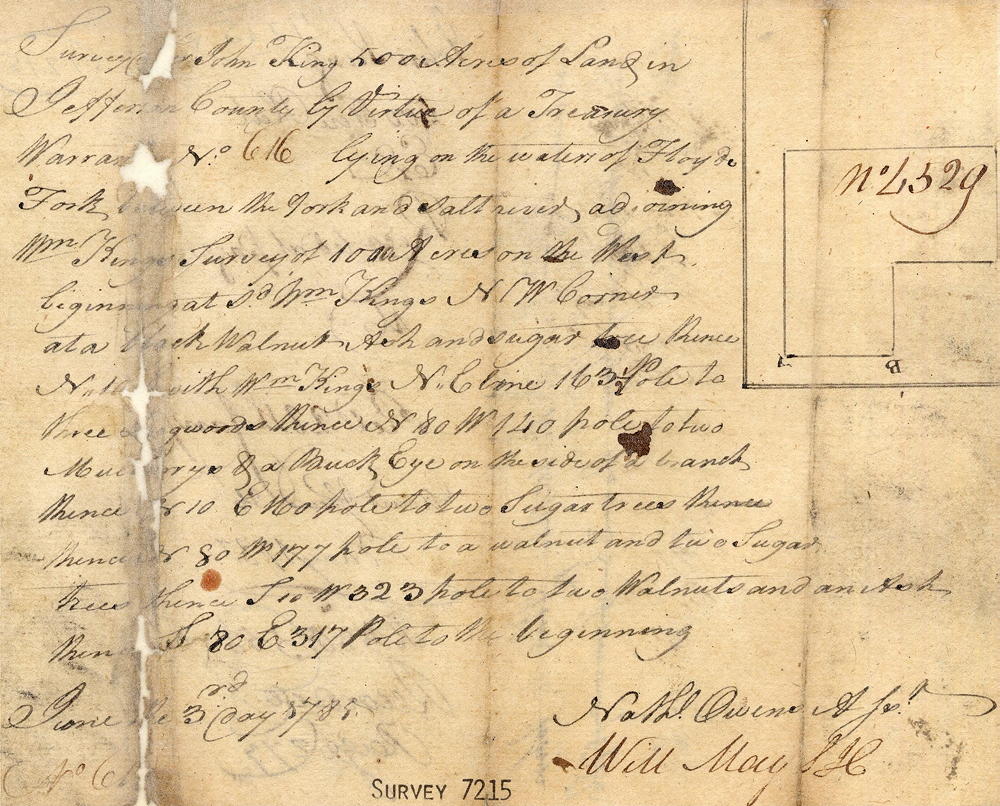 Survey for John King 500 Acres of Land in
Jefferson County by Virtue of a Treasury
Warran N.o 616 lying on the waters of Floyds
Fork between the fork and Salt river adjoining
Wm Kings Survey of 1000 Acres on the West
beginning at s.d Wm Kings N W Corner
at a black Walnut Ash and sugar tree thence
N. 10 with Wm Kings N. E line 163 1/2 Pole to
three dogwoods thence N 80 W 140 pole to two
Mulberrys & a Buck Eye on the side of a branch
thence N 10 E 160 pole to two Sugar trees thence
thence N 80 W 177 pole to a walnut and two Sugar
trees thence S 10 W 323 pole to two Walnuts and an Ash
then S 80 E 317 Pole to the beginning
June the 3rd day 1785.
Nath.l Owens Ass.t
Will May SJC
No. 6
no 4529
A
B
SURVEY 7215